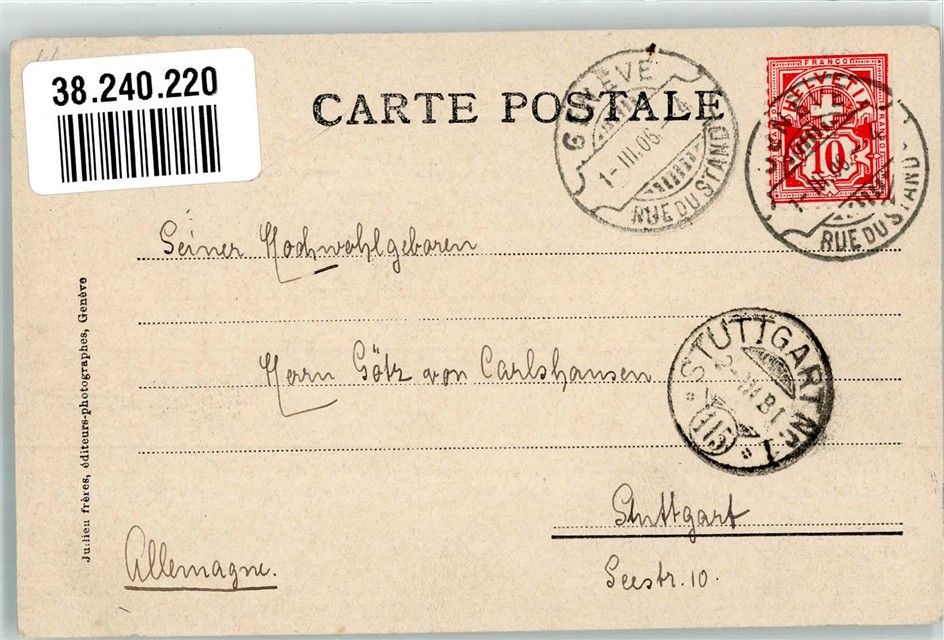 38.240.220
CARTE POSTALE
GENÈVE
1-III.06.
RUE DU STAND
FRANCO
HELVETIA
10
RUE DU STAND
Seiner Hochwohlgeboren
Herrn Götz von Carlshausen
STUTTGART Nr. 1
115
Stuttgart
Seestr. 10.
Allemagne.
Jullien frères, éditeurs-photographes, Genève